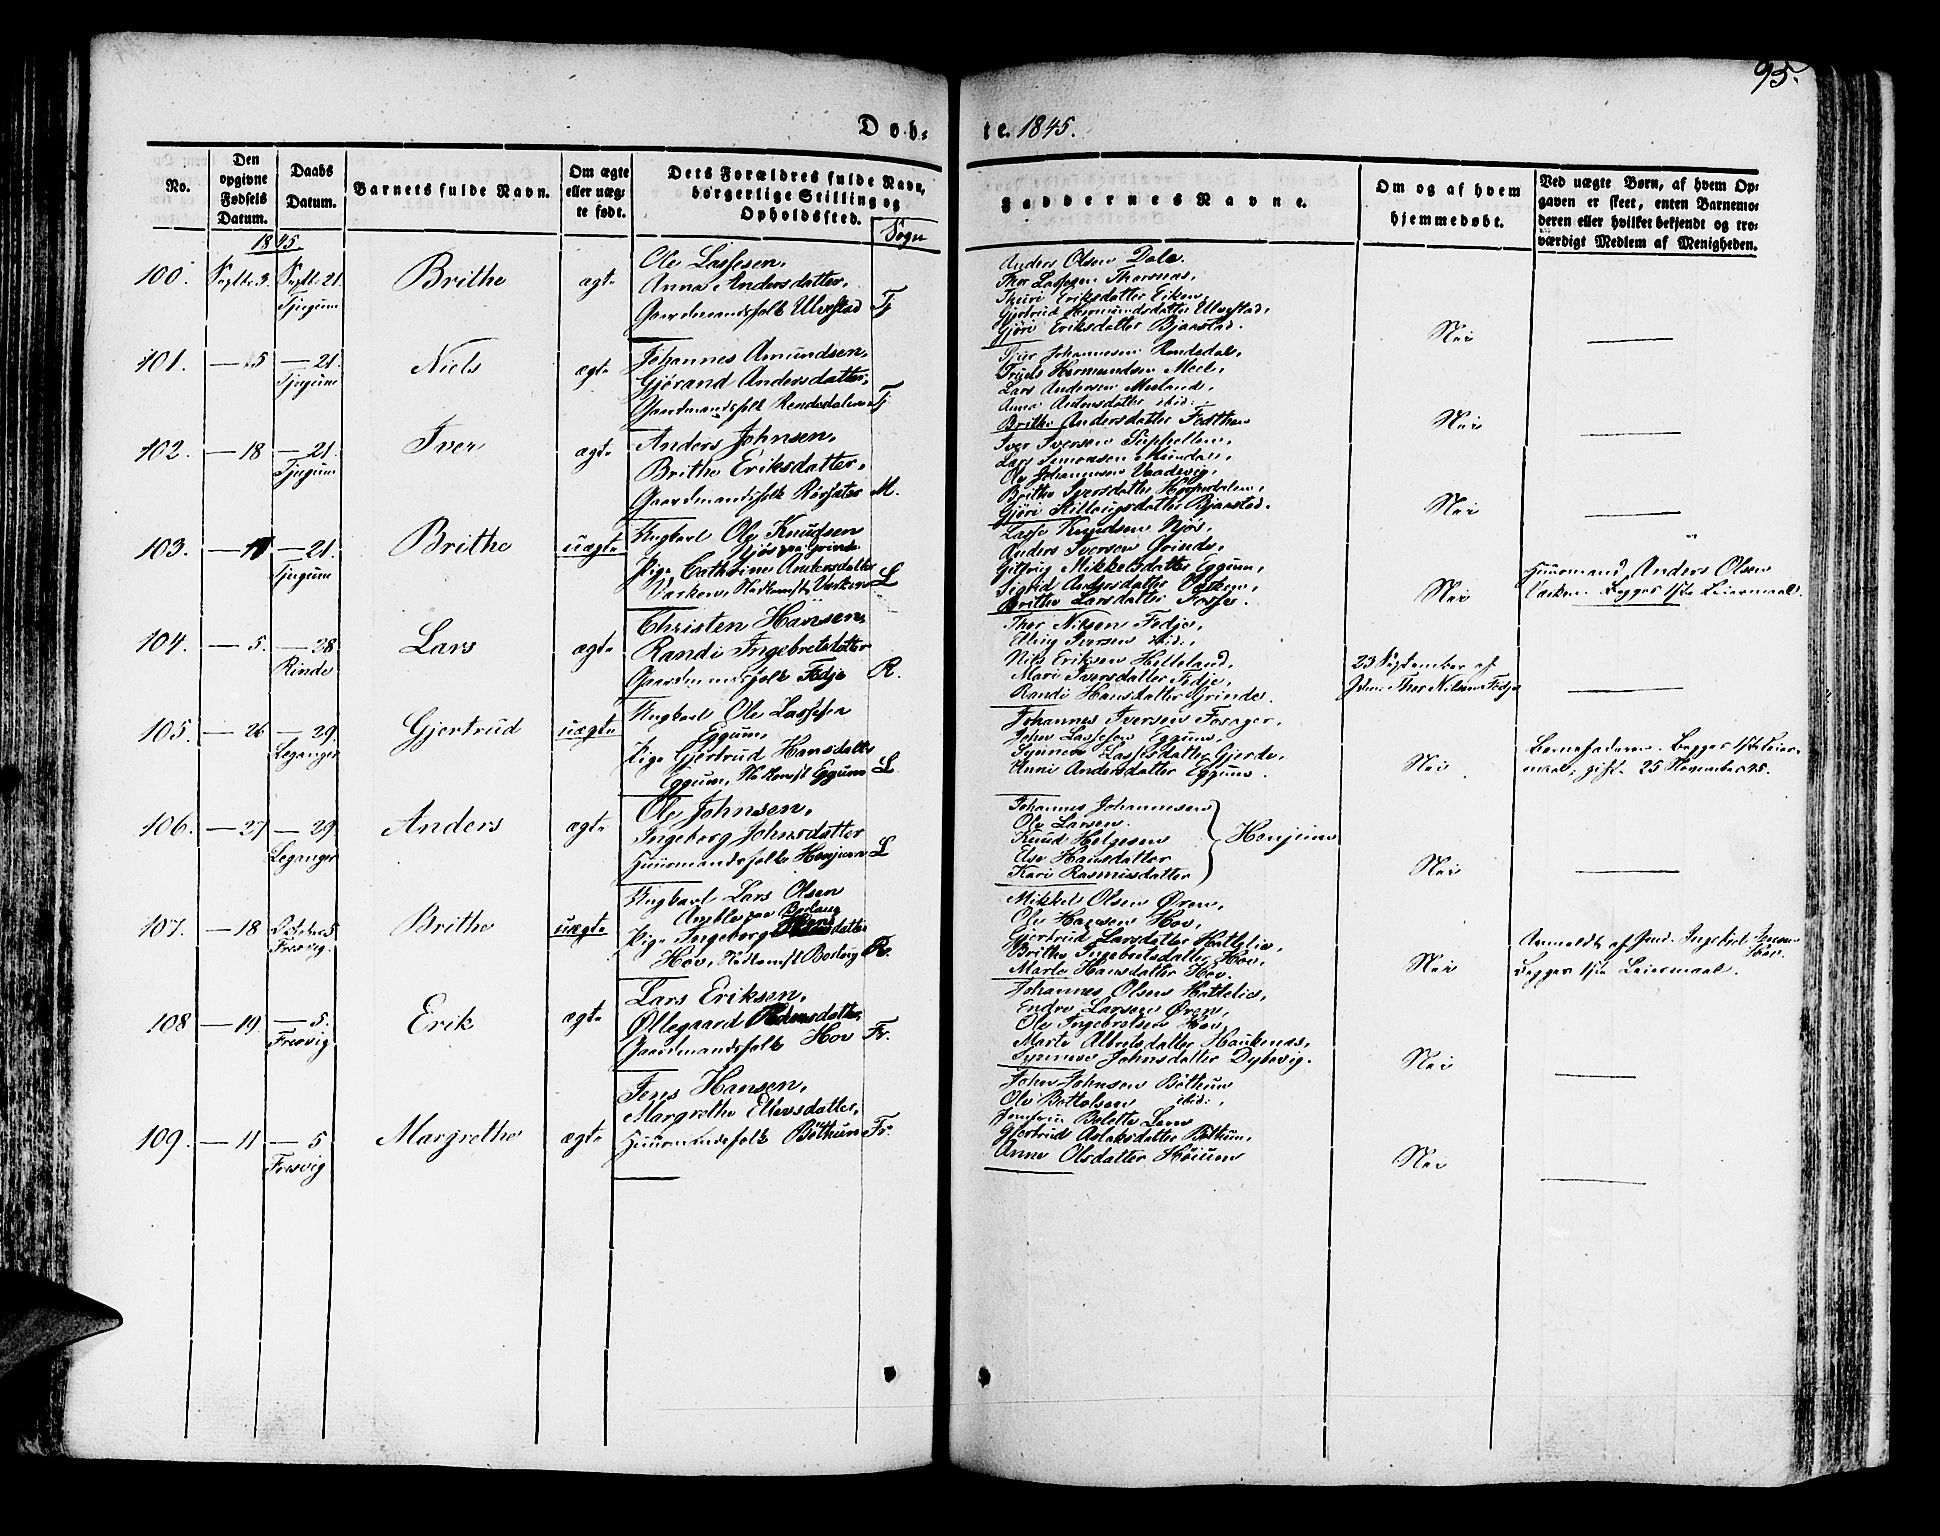 95.
Døb-
te. 1845.
No.
Den opgivne Fødsels Datum.
Daabs Datum.
Barnets fulde Navn.
Om ægte eller uæg-te født.
Dets Forældres fulde Navn, borgerlige Stilling og Opholdssted.
Sogn
Faddernes Navne.
Om og af hvem hjemmedøbt.
Ved uægte Børn, af hvem Op-gaven er skeet, enten Barnemo-deren eller hvilket bekjendt og tro-værdigt Medlem af Menigheden.
1845.
100. Septbr 3. Septbr 21. Brithe ægte Ole Lassesen,
Tjugum Anna Andersdatter,
Gaardmandsfolk Ulvestad Tj
Anders Olsen Dale.
Thor Lassesen Thorsnæs,
Thuri Eriksdatter Eiken,
Gjertrud Hermundsdatter Ulvestad,
Gjøri Eriksdatter Bjaastad.
Nei
101. — 5 — 21. Niels ægte Johannes Amundsen,
Tjugum Gjørand Andersdatter,
Gaardmandsfolk Rendedalen Tj
Johannesen Rendedal,
Hermundsen Meel,
Lars Andersen Meeland,
Anna Antonsdatter ibid:,
Brithe Andersdatter Fedthun
Nei
102. — 18 — 21. Iver ægte Anders Johnsen,
Tjugum Brithe Eriksdatter,
Gaardmandsfolk Rørsæter M.
Iver Iversen Supphellen,
Lars Simonsen Mundal,
Ole Johannesen Vaadevig,
Brithe Iversdatter
Gjøri Bjaastad.
Nei
103. — — 21. Brithe uægte Ungkarl Ole Knudsen
Tjugum Njøs paa Grinde
Pige Cathrine Andersdatter
Varken, Nedkomst Varken L
Lasse Knudsen Njøs,
Anders Iversen Grinde,
Mikkelsdatter Eggum,
Sigrid Andersdatter
Brithe Larsdatter Fosse.
Nei
Huusmand Anders Olsen
Varken. Begges 1ste Leiermaal.
104. — 5. — 28. Lars ægte Christen Hansen,
Rinde Randi Ingebretsdatter
Gaardmandsfolk Fedje R.
Thor Nilsen Fedje,
Elling Iversen ibid:,
Nils Eriksen Helleland,
Mari Iversdatter Fedje,
Randi Hansdatter Grinde.
23 September af
Thor Nilsen Fedje
105. — 26 — 29. Gjertrud uægte Ungkarl Ole Lassesen
Leganger Eggum,
Pige Gjertrud Hansdatter
Eggum, Nedkomst Eggum L
Johannes Iversen Fosager,
John Lassesen Eggum,
Synneve Lassesdatter Gjerde,
Anni Andersdatter Eggum.
Nei
Barnefaderen. Begges 1ste Leier-
maal, gift 25 November 45.
106. — 27 — 29. Anders ægte Ole Johnsen,
Leganger Ingeborg Johnsdatter
Huusmandsfolk Henjum L
Johannes Johannesen
Ole Larsen.
Knud Helgesen
Else Hansdatter
Kari Rasmusdatter
Henjum
Nei
107. — 18 October 5. Brithe uægte Ungkarl Lars Olsen
Fresvig. Amble paa Bolaug
Pige Ingeborg Hansdatter
Hov, Nedkomst Fr.
Mikkel Olsen Øren,
Ole Hansen Hov,
Gjertrud Larsdatter Hattelie,
Brithe Ingebretsdatter Hov,
Marte Hansdatter Hov.
Nei
Anmeldt af
Begges 1ste Leiermaal.
108 — 19. — 5. Erik ægte Lars Eriksen,
Fresvig Øllegaard Pedersdatter,
Gaardmandsfolk Hov Fr.
Johannes Olsen Hattelie,
Endre Larsen Øren,
Ole Ingebretsen Hov,
Marte Albretsdatter Haukenæs,
Synneve Johnsdatter Dybevig.
Nei
109. — 11 — 5 Margrethe ægte Jens Hansen,
Fresvig Margrethe Ellensdatter,
Huusmandsfolk Bøthun Fr.
John Johnsen Bøthun
Ole Botholsen ibid:,
Jomfru Bolette Lem
Gjertrud Aslaksdatter Bøthun,
Anne Olsdatter Høium
Nei